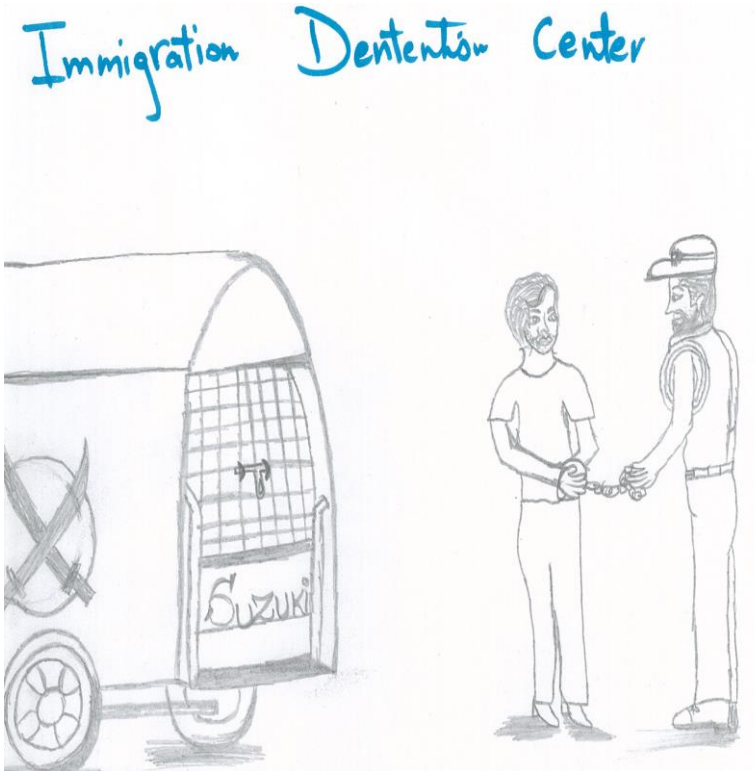 Immigration Dentention Center
SUZUKI